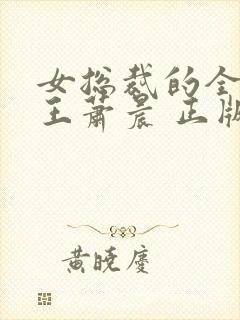 女总裁的全
王萧晨 正版
黄晓庆